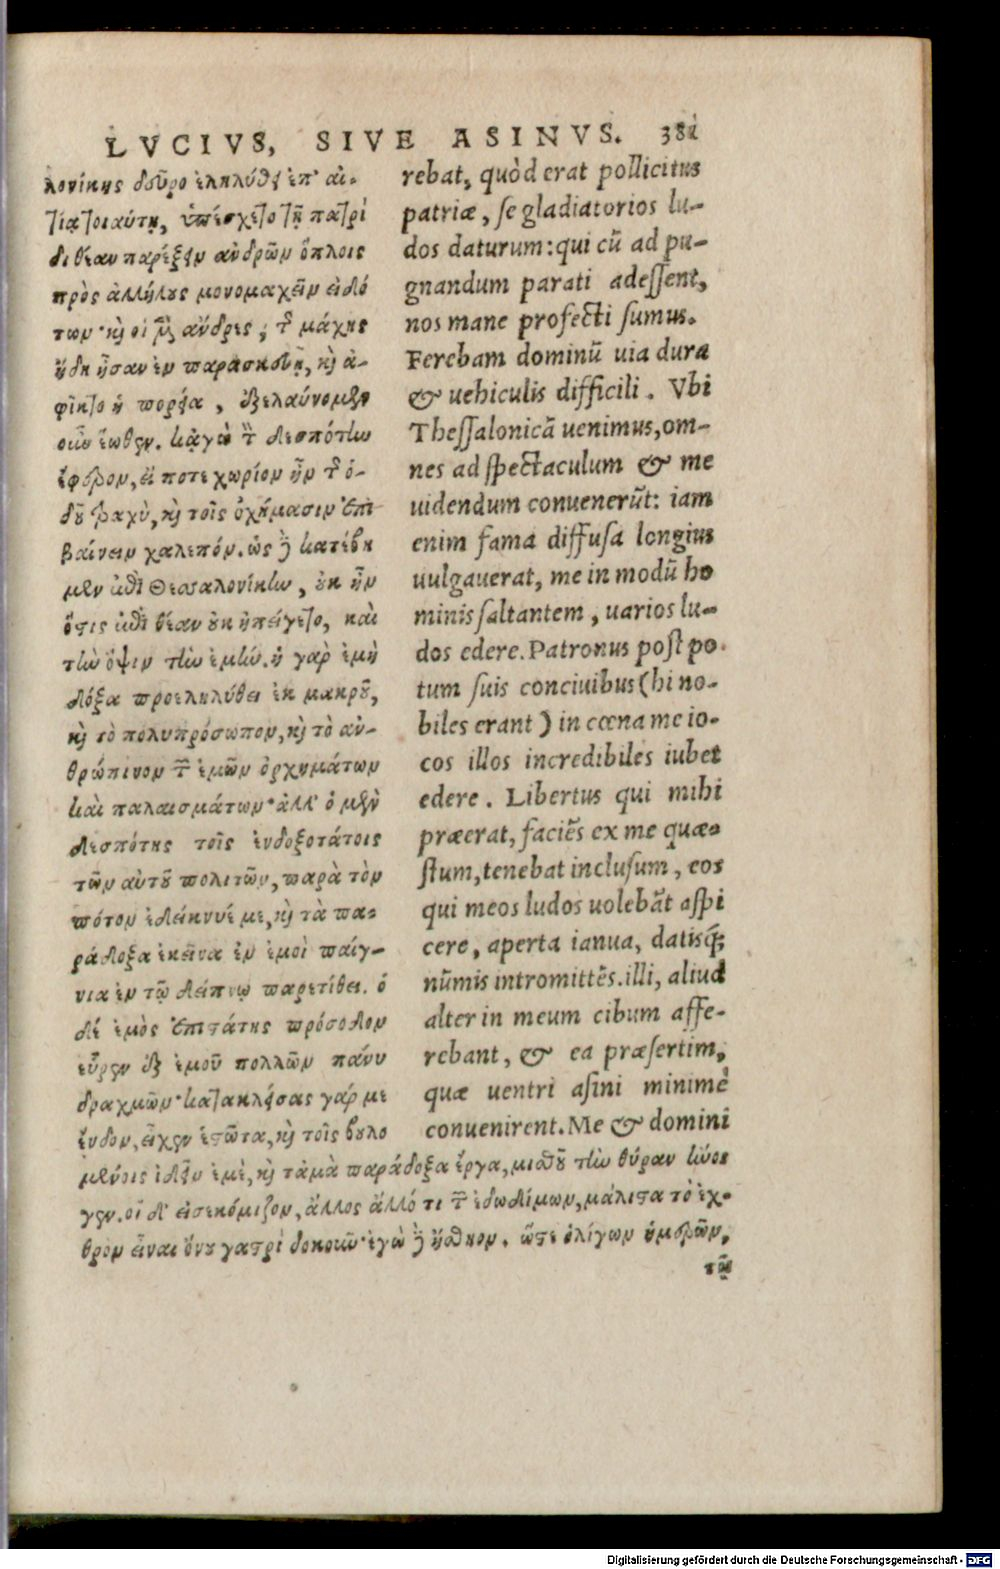 LVCIVS, SIVE ASINVS. 381
λονίκης δεῦρο ἐληλύθει ἐπ' αἰ-
τίᾳ τοιαύτῃ, ὑπέσχετο τῇ πατρί
δι θέαν παρέξειν ἀνδρῶν ὅπλοις
πρὸς ἀλλήλους μονομαχεῖν εἰδό
των· καὶ οἱ μὲν ἄνδρες, τῆς μάχης
ἤδη ἦσαν ἐν παρασκευῇ, καὶ ἀ-
φῖκτο ἡ πορεία, ἐξελαύνομεν
οὖν ἕωθεν. κἀγὼ τὸν δεσπότην
ἔφερον, εἴ ποτε χωρίον ἦν τῆς ὁ-
δοῦ τραχὺ, καὶ τοῖς ὀχήμασιν ἐπι
βαίνειν χαλεπόν. ὡς δὲ κατέβη
μεν ἐπὶ Θεσσαλονίκην, οὐκ ἦν
ὅστις ἐπὶ θέαν οὐκ ἠπείγετο, καὶ
τὴν ὄψιν τὴν ἐμήν. ἡ γὰρ ἐμὴ
δόξα προεληλύθει ἐκ μακροῦ,
καὶ τὸ πολυπρόσωπον, καὶ τὸ ἀν-
θρώπινον τῶν ἐμῶν ὀρχημάτων
καὶ παλαισμάτων· ἀλλ' ὁ μὲν
δεσπότης τοῖς ἐνδοξοτάτοις
τῶν αὐτοῦ πολιτῶν, παρὰ τὸν
πότον ἐδείκνυέ με, καὶ τὰ πα-
ράδοξα ἐκεῖνα ἐν ἐμοὶ παίγ-
νια ἐν τῷ δείπνῳ παρετίθει. ὁ
δὲ ἐμὸς ἐπιστάτης πρόσοδον
εὗρεν ἐξ ἐμοῦ πολλῶν πάνυ
δραχμῶν· κατακλείσας γάρ με
ἔνδον, εἶχεν ἑστῶτα, καὶ τοῖς βουλο
μένοις ἰδεῖν ἐμὲ, καὶ τἀμὰ παράδοξα ἔργα, μισθοῦ τὴν θύραν ἤνοι
γεν. οἱ δ' εἰσεκόμιζον, ἄλλος ἄλλό τι τῶν ἐδωδίμων, μάλιστα τὸ ἐχ-
θρὸν εἶναι ὄνου γαστρὶ δοκοῦν· ἐγὼ δὲ ἤσθιον. ὥστε ὀλίγων ἡμερῶν,
τῷ
rebat, quòd erat pollicitus
patriæ, se gladiatorios lu-
dos daturum: qui cũ ad pu-
gnandum parati adessent,
nos mane profecti sumus.
Ferebam dominũ uia dura
& uehiculis difficili. Vbi
Thessalonicã uenimus, om-
nes ad spectaculum & me
uidendum conuenerũt: iam
enim fama diffusa longius
uulgauerat, me in modũ ho
minis saltantem, uarios lu-
dos edere. Patronus post po
tum suis conciuibus (hi no-
biles erant) in cœna me io-
cos illos incredibiles iubet
edere. Libertus qui mihi
præerat, faciẽs ex me quæ-
stum, tenebat inclusum, eos
qui meos ludos uolebãt aspi
cere, aperta ianua, datisq́;
nũmis intromittẽs. illi, aliud
alter in meum cibum affe-
rebant, & ea præsertim,
quæ uentri asini minimè
conuenirent. Me & domini
Digitalisierung gefördert durch die Deutsche Forschungsgemeinschaft - DFG